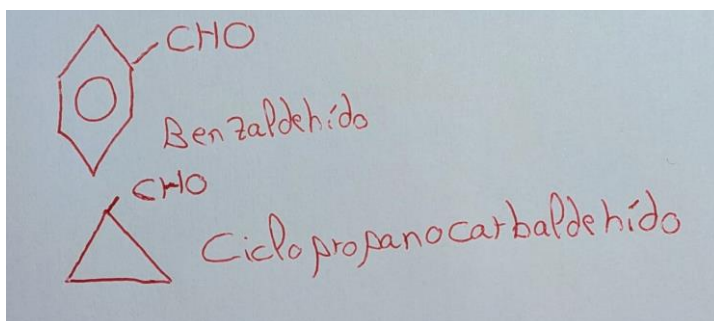 CHO
Benzaldehído
CHO
Ciclopropanocarbaldehído